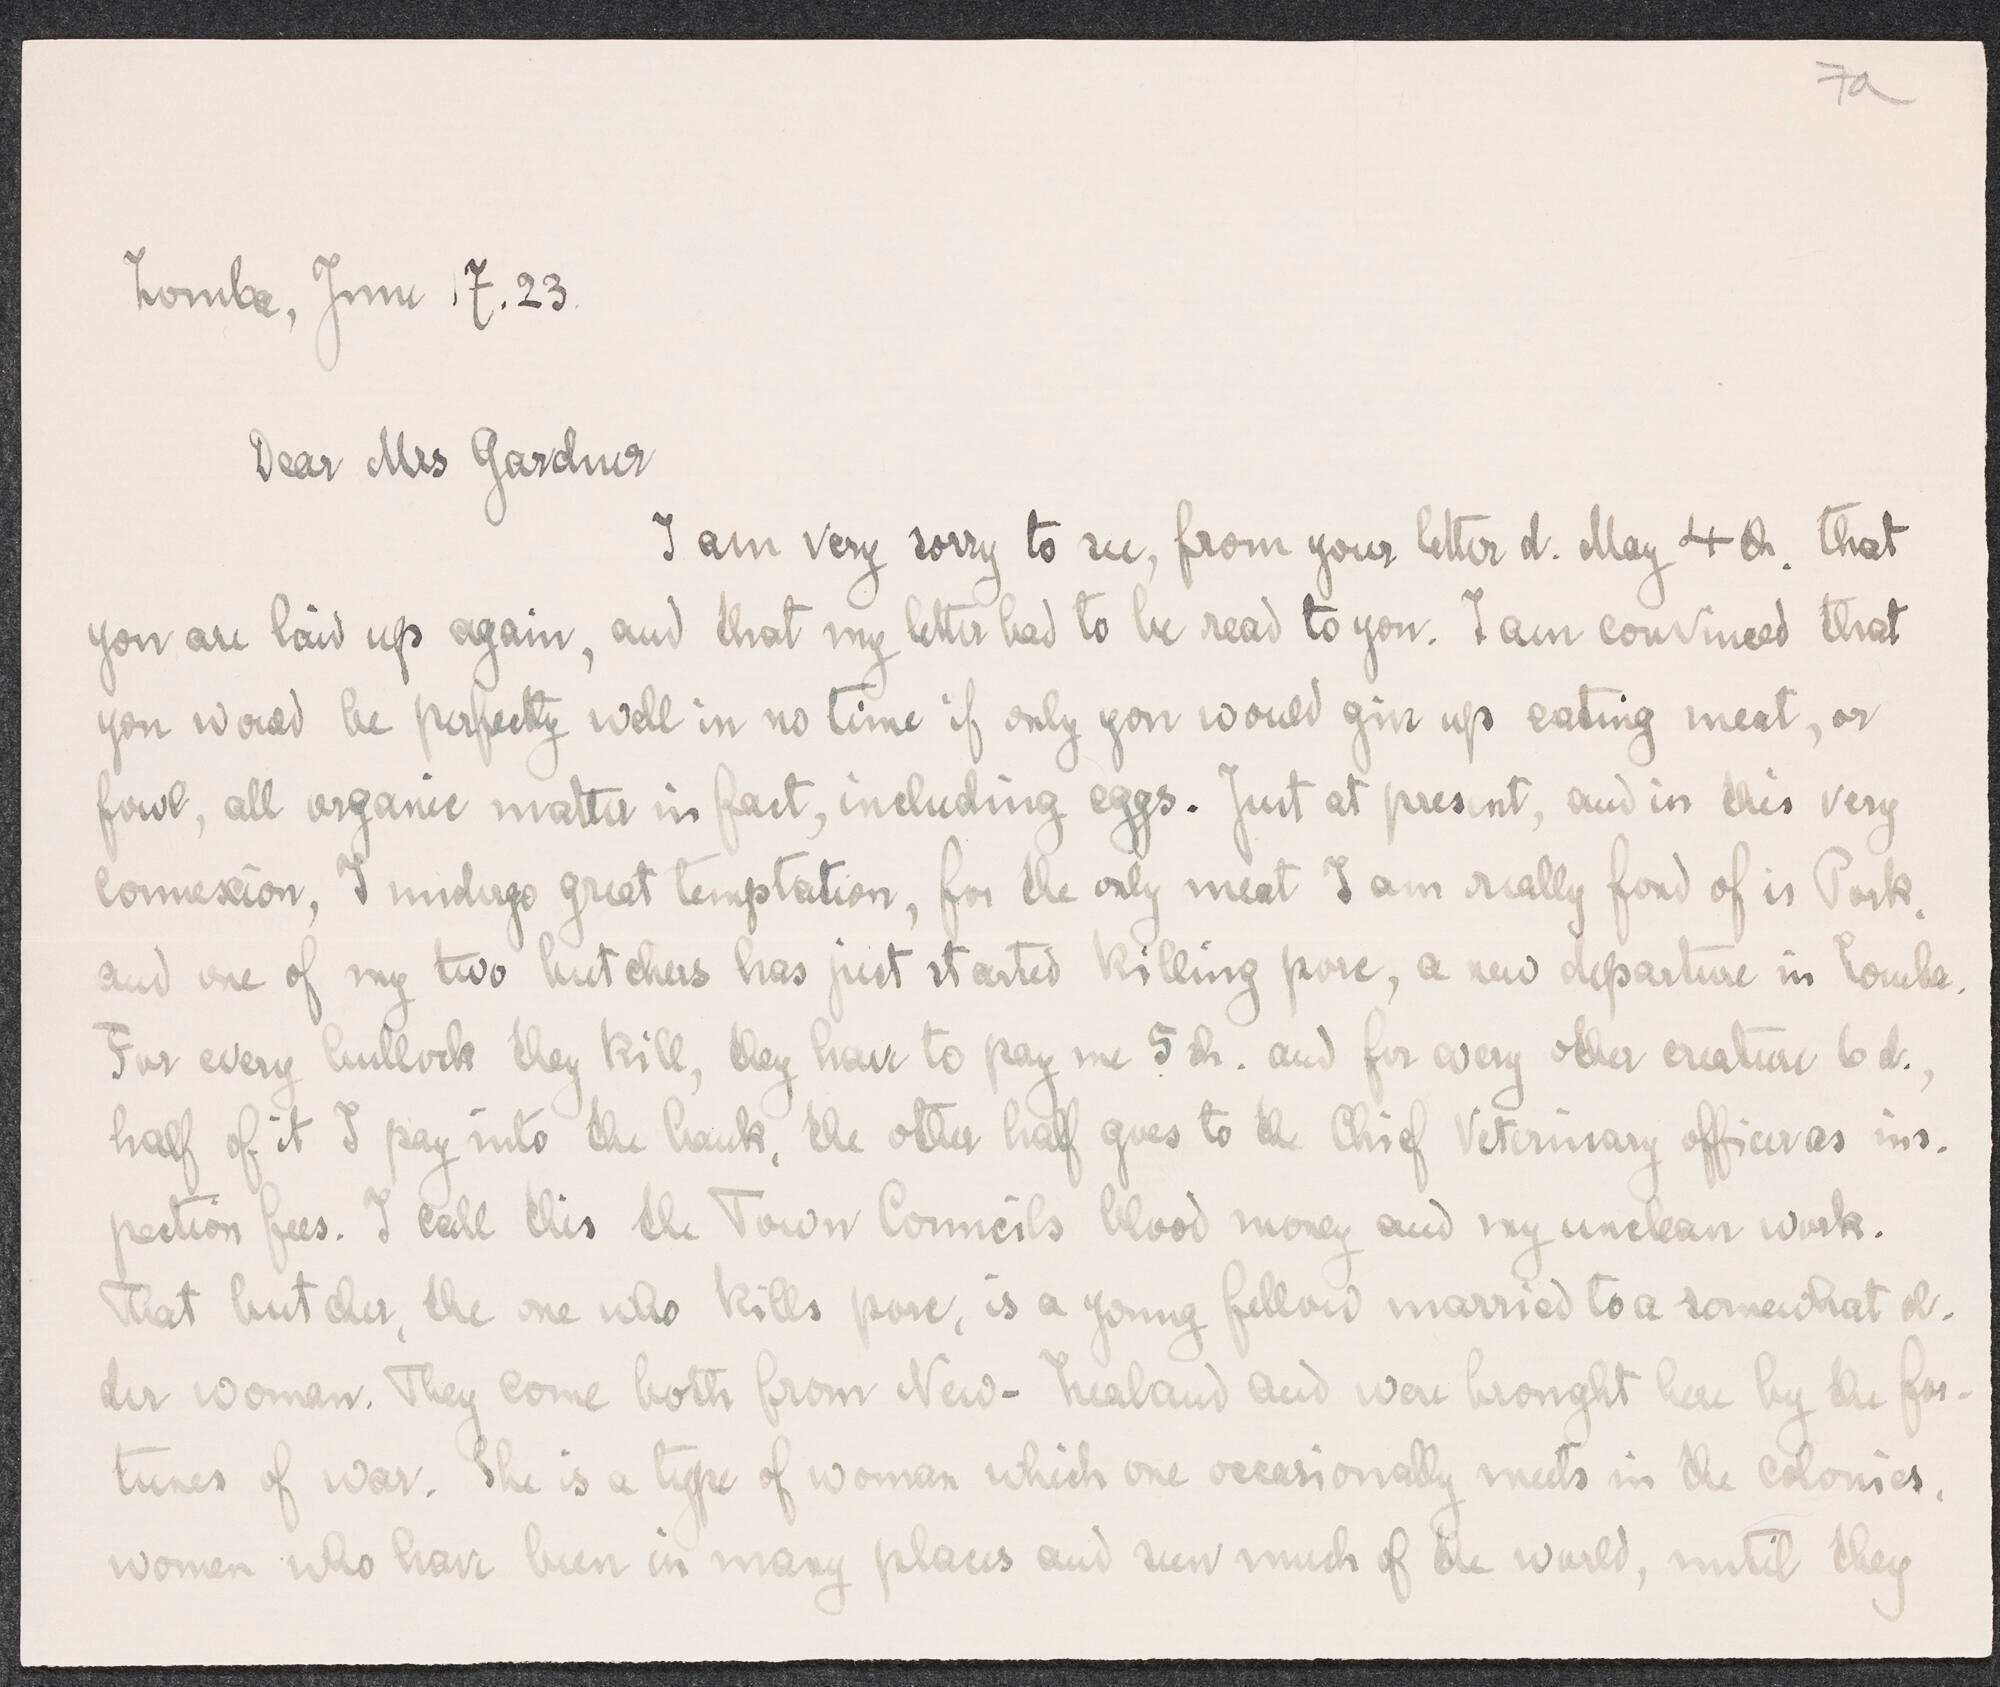 7a
Zomba, June 17. 23.
Dear Mrs Gardner
I am very sorry to see, from your letter d. May 4th. that
you are laid up again, and that my letter had to be read to you. I am convinced that
you would be perfectly well in no time if only you would give up eating meat, or
fowl, all organic matter in fact, including eggs. Just at present, and in this very
connexion, I undergo great temptation, for the only meat I am really fond of is Pork,
and one of my two butchers has just started killing porc, a new departure in Zomba.
For every bullock they kill, they have to pay me 5 sh. and for every other creature 6 d.,
half of it I pay into the bank, the other half goes to the Chief Veterinary officer as ins-
pection fees. I call this the Town Councils blood money and my unclean work.
That butcher, the one who kills porc, is a young fellow married to a somewhat ol-
der woman. They come both from New-Zealand and were brought here by the for-
tunes of war. She is a type of woman which one occasionally meets in the colonies,
women who have been in many places and seen much of the world, until they